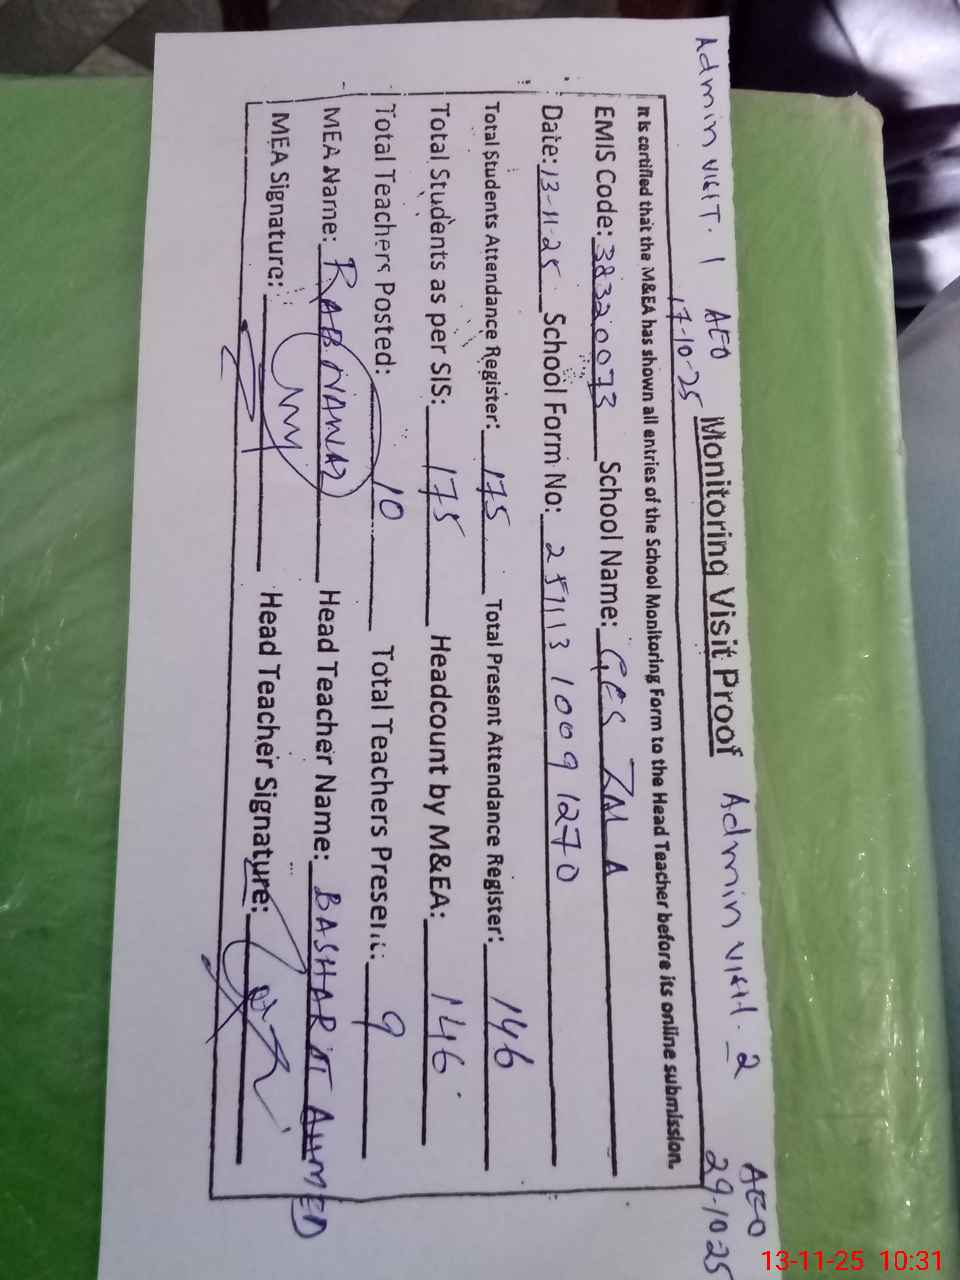 Admin visit. 1 AEO 17-10-25
Monitoring Visit Proof
Admin visit. 2 AEO 29-10-25
It is certified that the M&EA has shown all entries of the School Monitoring Form to the Head Teacher before its online submission.
EMIS Code: 38320073 School Name: GES ZM A
Date: 13-11-25 School Form No: 2 51113 1009 1270
Total Students Attendance Register: 175 Total Present Attendance Register: 146
Total Students as per SIS: 175 Headcount by M&EA: 146
Total Teachers Posted: 10 Total Teachers Present: 9
MEA Name: RAB NAWAZ Head Teacher Name: BASHARAT AHMED
MEA Signature: Head Teacher Signature:
13-11-25 10:31